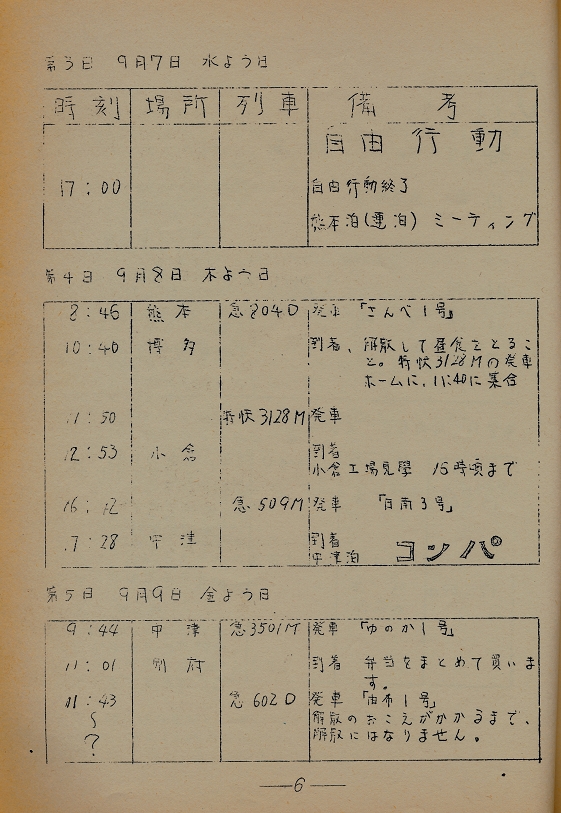 第3日 9月7日 水よう日
時刻 場所 列車 備考
自由行動
17:00 自由行動終了
熊本泊(連泊) ミーティング
第4日 9月8日 木よう日
8:46 熊本 急804D 発車 「さんべ1号」
10:40 博多 到着、解散して昼食をとるこ
と。特快3128Mの発車
ホームに、11:40に集合
11:50 特快3128M 発車
12:53 小倉 到着
小倉工場見学 15時頃まで
16:12 急509M 発車 「日南3号」
17:28 中津 到着
中津泊 コンパ
第5日 9月9日 金よう日
9:44 中津 急3501M 発車 「ゆのか1号」
11:01 別府 到着 弁当をまとめて買いま
す。
11:43 急602D 発車 「由布1号」
〜 解散のおこえがかかるまで、
? 解散にはなりません。
—6—